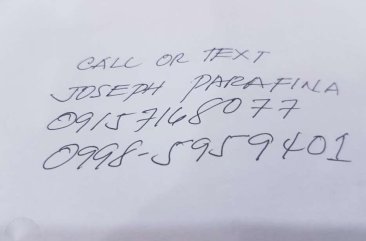 CALL OR TEXT
JOSEPH PARAFINA
09157168077
0998-5959401